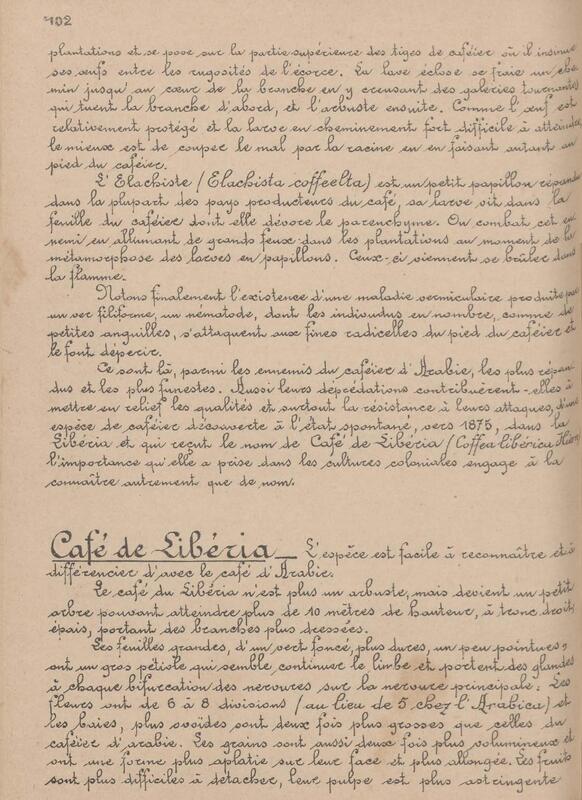 102
plantations et se pose sur la partie supérieure des tiges de caféier où il insinue
ses œufs entre les rugosités de l'écorce. La lave éclose se fraie un che
min jusqu'au cœur de la branche en y creusant des galeries tournantes
qui tuent la branche d'abord, et l'arbuste ensuite. Comme l'œuf est
relativement protégé et la larve en cheminement fort difficile à atteindre
le mieux est de couper le mal par la racine en en faisant autant au
pied du caféier.
L'Elachiste (Elachista coffeelta) est un petit papillon répandu
dans la plupart des pays producteurs du café, sa larve vit dans la
feuille du caféier dont elle dévore le parenchyme. On combat cet en
nemi en allumant de grands feux dans les plantations au moment de la
métamorphose des larves en papillons. Ceux-ci viennent se brûler dans
la flamme.
Notons finalement l'existence d'une maladie vermiculaire produite par
un ver filiforme, un nématode, dont les individus en nombre, comme de
petites anguilles, s'attaquent aux fines radicelles du pied du caféier et
le font dépérir.
Ce sont là, parmi les ennemis du caféier d'Arabie, les plus répan
dus et les plus funestes. Aussi leurs déprédations contribuèrent-elles à
mettre en relief les qualités et surtout la résistance à leurs attaques, d'une
espèce de caféier découverte à l'état spontané, vers 1875, dans la
Libéria et qui reçut le nom de Café de Libéria (Coffea libérica Hiern)
l'importance qu'elle a prise dans les cultures coloniales engage à la
connaître autrement que de nom.
Café de Libéria _ L'espèce est facile à reconnaître et à
différencier d'avec le café d'Arabie.
Le café du Libéria n'est plus un arbuste, mais devient un petit
arbre pouvant atteindre plus de 10 mètres de hauteur, à tronc droit
épais, portant des branches plus dressées.
Les feuilles grandes, d'un vert foncé, plus dures, un peu pointues,
ont un gros pétiole qui semble continuer le limbe et portent des glandes
à chaque bifurcation des nervures sur la nervure principale. Les
fleurs ont de 6 à 8 divisions (au lieu de 5 chez l'Arabica) et
les baies, plus ovoïdes sont deux fois plus grosses que celles du
caféier d'arabie. Les grains sont aussi deux fois plus volumineux et
ont une forme plus aplatie sur leur face et plus allongée. Les fruits
sont plus difficiles à détacher, leur pulpe est plus astringente